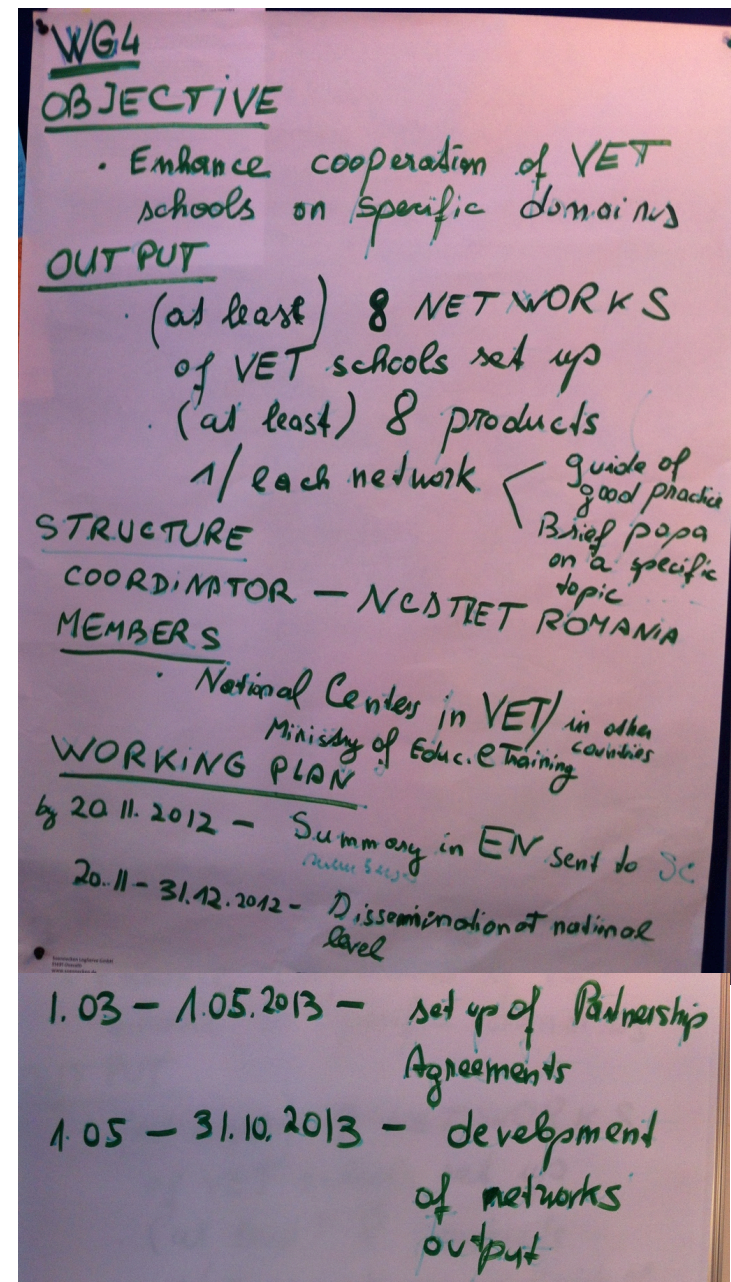 WG4
OBJECTIVE
· Enhance cooperation of VET
schools on specific domains
OUTPUT
· (at least) 8 NETWORKS
of VET schools set up
· (at least) 8 products
1/ each network < guide of
good practice
Brief papa
on a specific
topic
STRUCTURE
COORDINATOR — NCDTVET ROMANIA
MEMBERS
· National Centers in VET/ in other
countries
Ministry of Educ. e Training
WORKING PLAN
by 20.11.2012 - Summary in EN sent to SC
20.11 - 31.12.2012 - Dissemination at national
level
1.03 - 1.05.2013 - set up of Partnership
Agreements
1.05 - 31.10.2013 - development
of networks
output